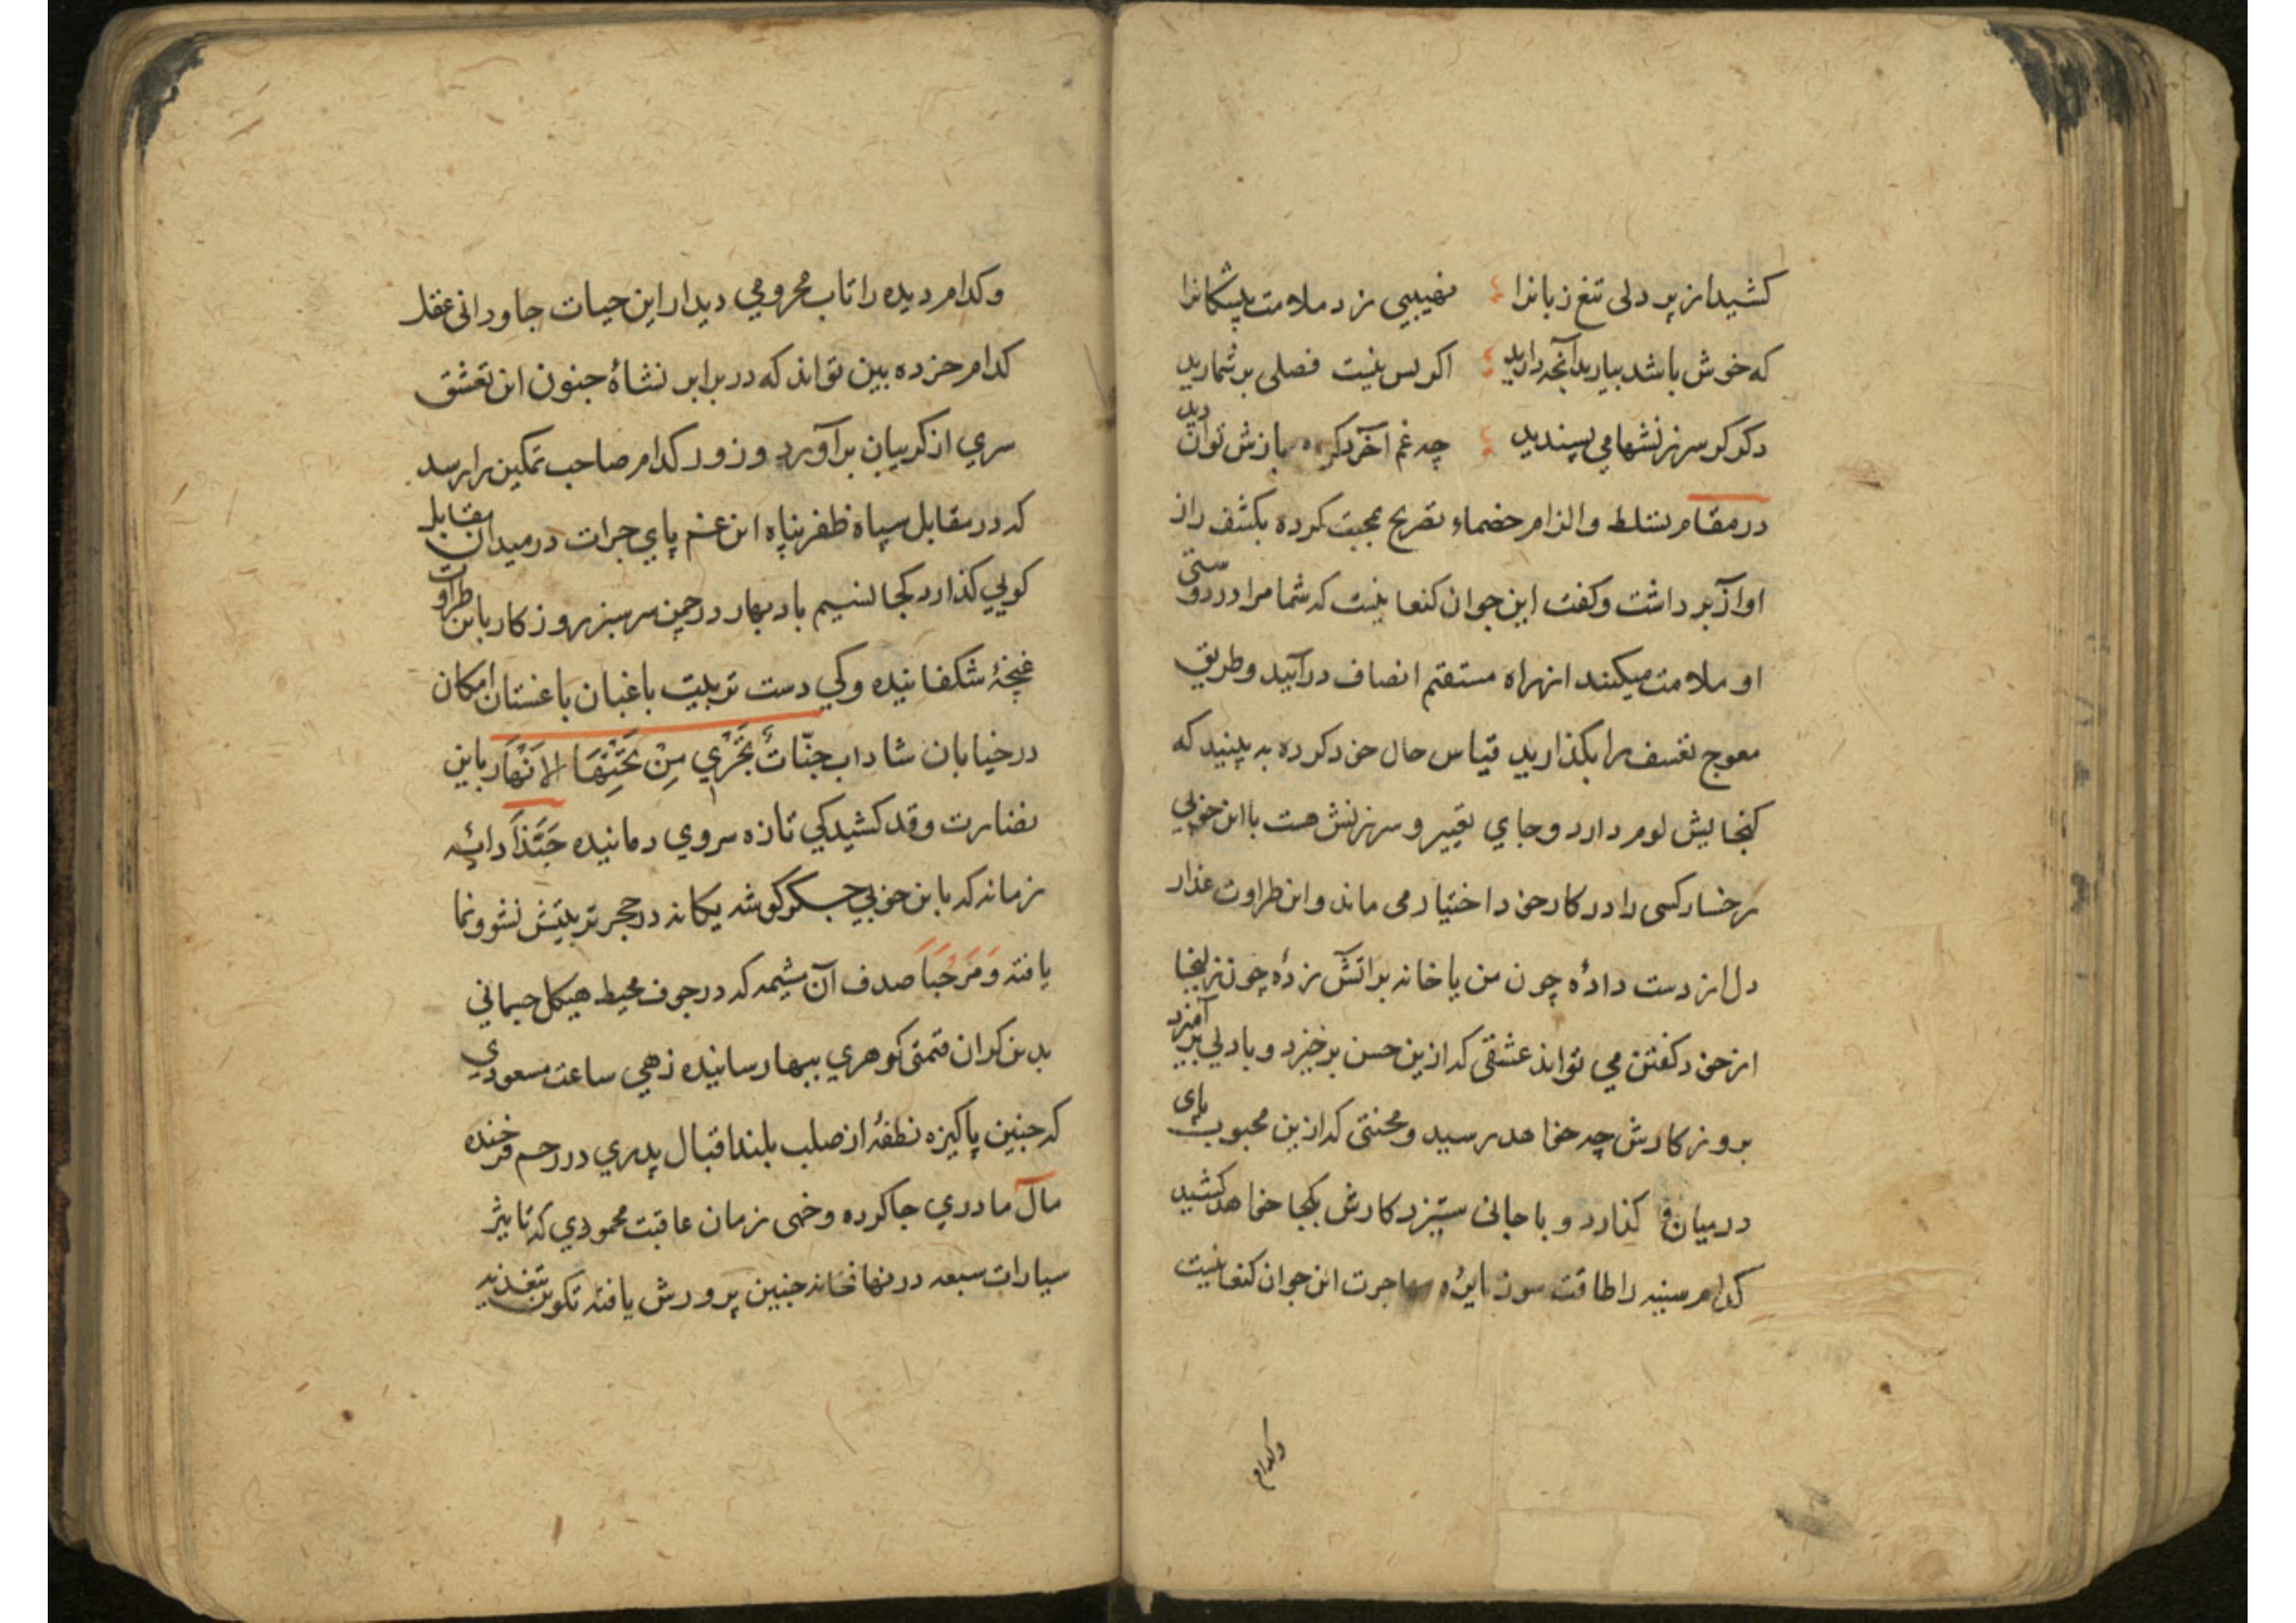 کشید از پر دلی تیغ زبانرا نصیبی زد ملامت پیشکانرا
که خوش باشد بیارید آنچه دارید اکر بس نیست فصلی بر شمارید
دکر کر سرزنشها می پسندید چه غم آخر دکر بازش توان دید
در مقام تسلط والزام خصماء تصریح بمحبت کرده بکشف راز
او آواز برداشت وکفت این جوان کنعانیست که شما مرا در دوستی
او ملامت میکنند از راه مستقیم انصاف در آئید وطریق
معوج تعسف را بکذارید قیاس حال خود کرده به بینید که
کنجایش لوم دارد وجای تعییر وسرزنش هست با این خوبی
رخسار کسی را در کار خود اختیار می ماند واین طراوت عذار
دل از دست دادۀ چون من یا خانه بر اتش زدۀ چون زلیخا
از خود کفتن می تواند عشقی که ازین حسن برخیزد وبا دلی بر آمیزد
بروزکارش چه خواهد رسید ومحنتی که ازین محبوب پای
در میان کذارد وبا جانی ستیزد کارش بکجا خواهد کشید
کدام سینه را طاقت سوز نایرۀ مهاجرت این جوان کنعانیست
وکدام
وکدام دیده را تاب محرومی دیدار این حیات جاودانی عقل
کدام خرده بین تواند که در برابر نشاۀ جنون این تعشق
سری از کریبان بر آورد وزور کدام صاحب تمکین را رسد
که در مقابل سپاه ظفر پناه این غم پای جرات در میدان مقابله
کوبی کذارد کجا نسیم باد بهار در چمن سرسبز روزکار باین طراوت
غنچۀ شکفانیده وکی دست تربیت باغبان باغستان امکان
در خیابان شاداب جنّاتٌ تَجْرِي مِنْ تَحْتِهَا الاَنْهَار باین
نضارت وقد کشیدکی تازه سروی دمانیده حَبَّذَا دایۀ
زمانه که باین خوبی جکر کوشه یکانه در حجر تربیتش نشو ونما
یافته وَمَرْحَبَاً صدف آن مشیمه که در جوف محیط هیکل جسمانی
بدین کران قیمتی کوهری ببهار سانیده زهی ساعت مسعودی
که جنین پاکیزه نطفۀ از صلب بلند اقبال پدری در رحم فرخنده
مآل مادری جا کرده وخهی زمان عاقبت محمودی که تاثیر
سیارات سبعه در نهانخانه جنین پرورش یافته تکوین